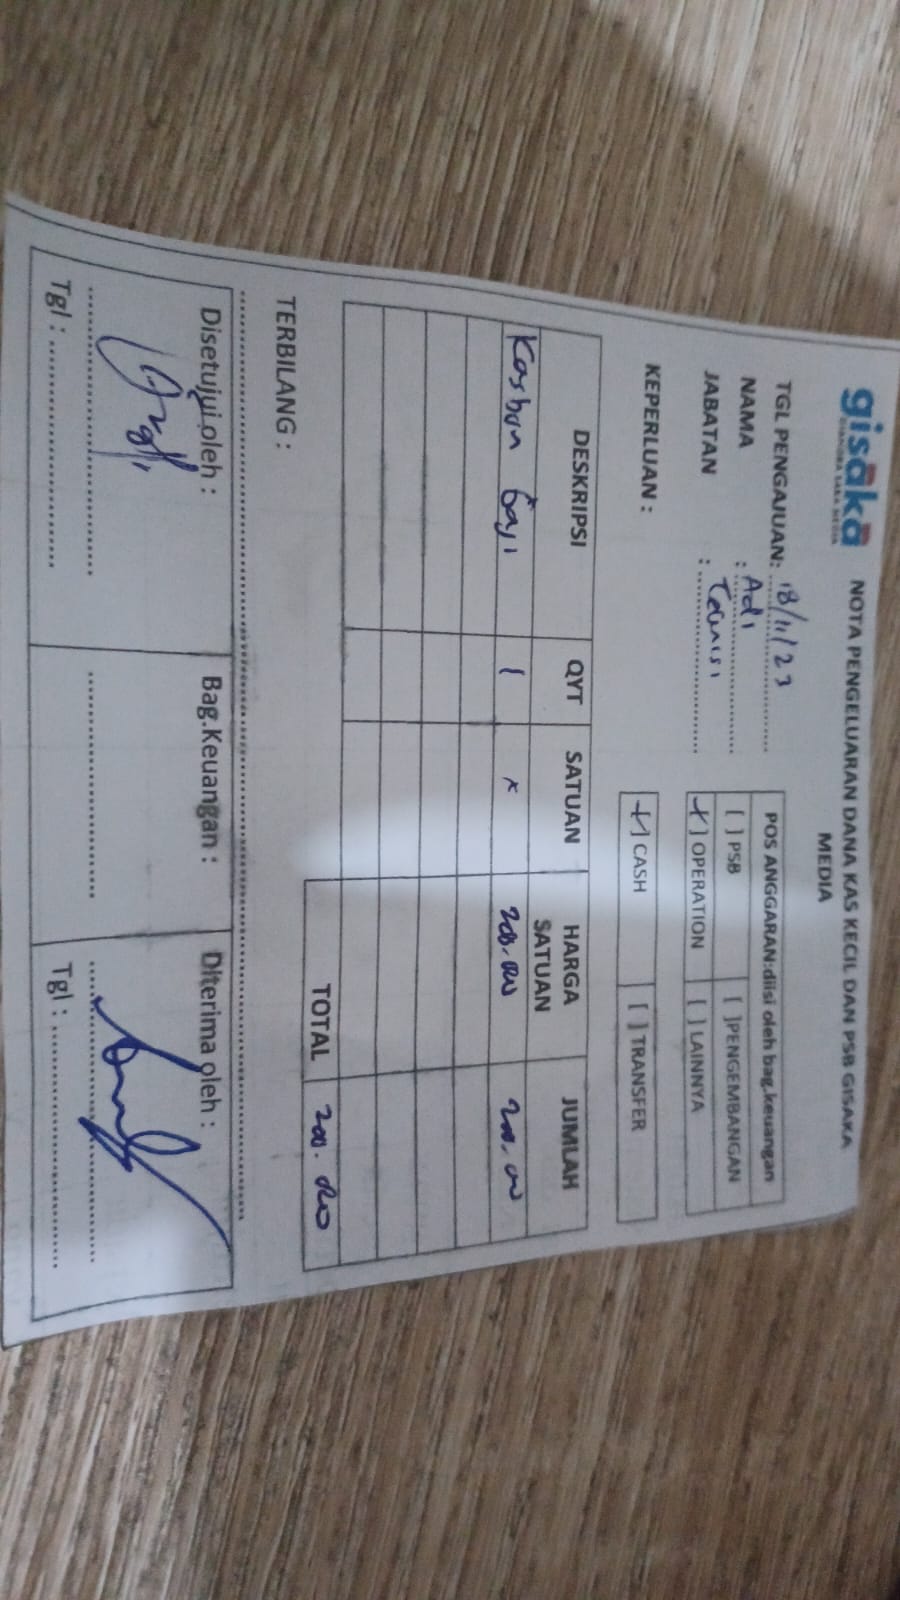 gisaka
NOTA PENGELUARAN DANA KAS KECIL DAN PSB GISAKA
MEDIA
TGL PENGAJUAN: 18/11/23
NAMA : Adi
JABATAN : Teknisi
POS ANGGARAN:diisi oleh bag.keuangan
[ ] PSB [ ]PENGEMBANGAN
[+] OPERATION [ ] LAINNYA
KEPERLUAN :
[+] CASH [ ] TRANSFER
DESKRIPSI QYT SATUAN HARGA SATUAN JUMLAH
Kasbon Gaji 1 x 200.000 200.000
TOTAL 200.000
TERBILANG :
Disetujui oleh : Bag.Keuangan : Diterima oleh :
Tgl : Tgl :